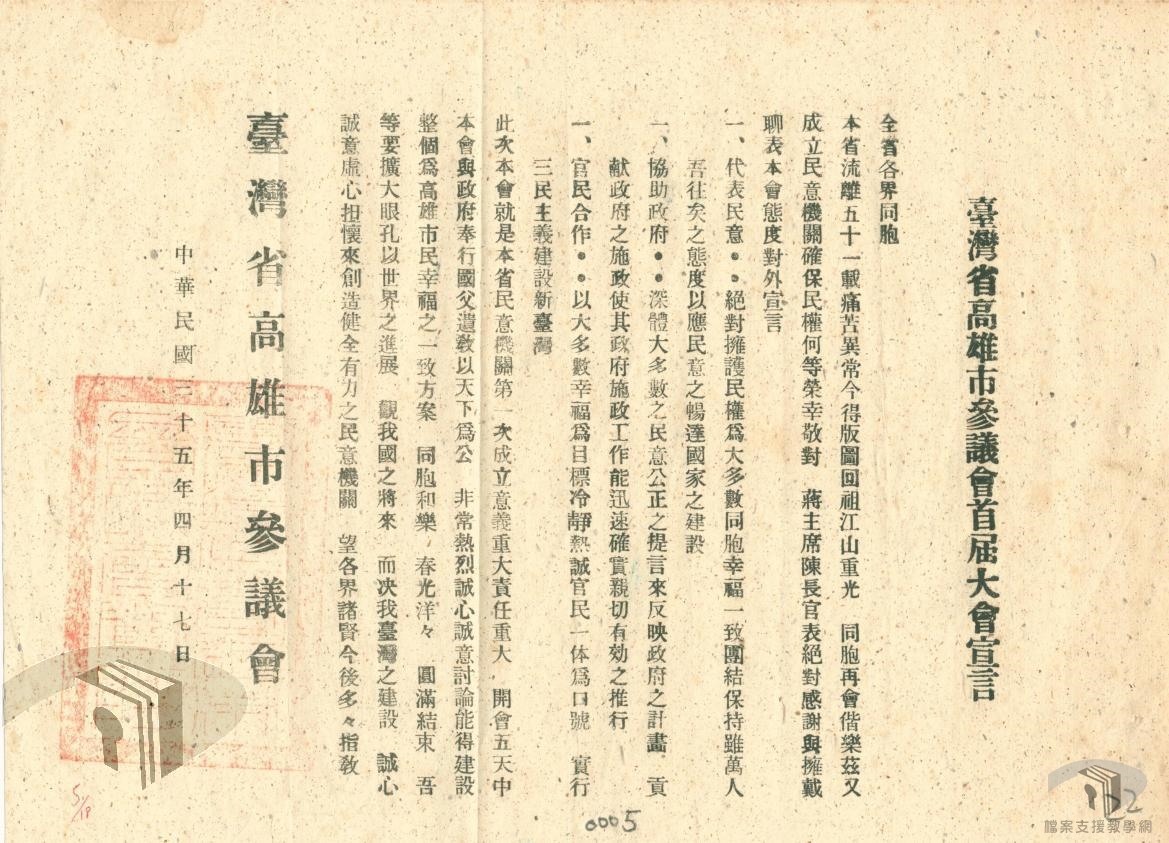 臺灣省高雄市參議會首屆大會宣言
全省各界同胞
本省流離五十一載痛苦異常今得版圖回祖江山重光　同胞再會偕樂茲又
成立民意機關確保民權何等榮幸敬對　蔣主席陳長官表絕對感謝與擁戴
聊表本會態度對外宣言
一、代表民意・・絕對擁護民權爲大多數同胞幸福一致團結保持雖萬人
吾往矣之態度以應民意之暢達國家之建設
一、協助政府・・深體大多數之民意公正之提言來反映政府之計畫　貢
献政府之施政使其政府施政工作能迅速確實親切有効之推行
一、官民合作・・以大多數幸福爲目標冷靜熱誠官民一体爲口號　實行
三民主義建設新臺灣
此次本會就是本省民意機關第一次成立意義重大責任重大　開會五天中
本會與政府奉行國父遺教以天下爲公　非常熱烈誠心誠意討論能得建設
整個爲高雄市民幸福之一致方案　同胞和樂，春光洋々　圓滿結束　吾
等要擴大眼孔以世界之進展　觀我國之將來　而決我臺灣之建設　誠心
誠意虛心担懷來創造健全有力之民意機關　望各界諸賢今後多々指教
臺灣省高雄市參議會
中華民國三十五年四月十七日
5/18
0005
22
檔案支援教學網